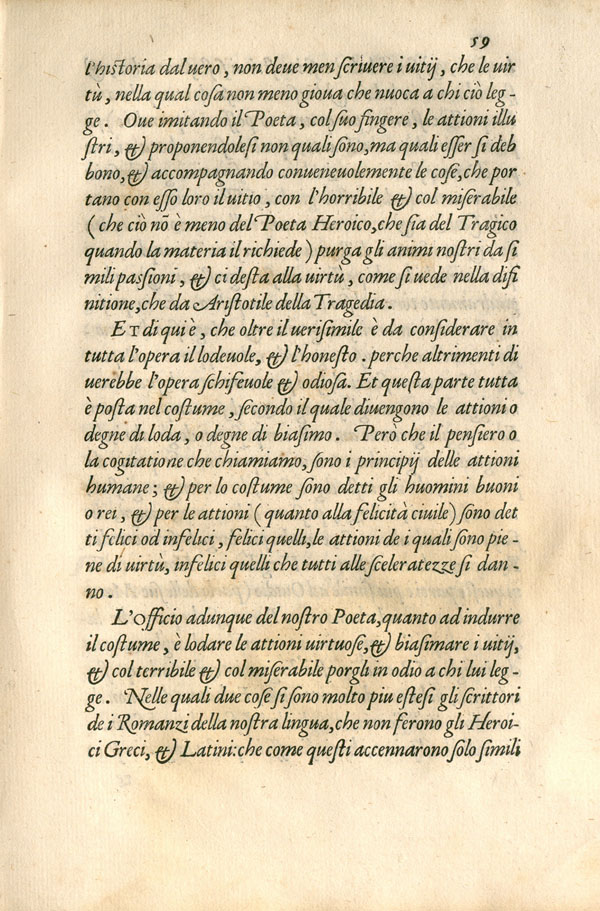 59
l'historia dal uero, non deue men scriuere i uitij, che le uir
tù, nella qual cosa non meno gioua che nuoca a chi ciò leg-
ge. Oue imitando il Poeta, col suo fingere, le attioni illu
stri, & proponendolesi non quali sono, ma quali esser si deb
bono, & accompagnando conueneuolemente le cose, che por
tano con esso loro il uitio, con l'horribile & col miserabile
(che ciò nõ è meno del Poeta Heroico, che sia del Tragico
quando la materia il richiede) purga gli animi nostri da si
mili passioni, & ci desta alla uirtù, come si uede nella difi
nitione, che da Aristotile della Tragedia.
ET di qui è, che oltre il uerisimile è da considerare in
tutta l'opera il lodeuole, & l'honesto. perche altrimenti di
uerebbe l'opera schifeuole & odiosa. Et questa parte tutta
è posta nel costume, secondo il quale diuengono le attioni o
degne di loda, o degne di biasimo. Però che il pensiero o
la cogitatione che chiamiamo, sono i principij delle attioni
humane; & per lo costume sono detti gli huomini buoni
o rei, & per le attioni (quanto alla felicità ciuile) sono det
ti felici od infelici, felici quelli, le attioni de i quali sono pie-
ne di uirtù, infelici quelli che tutti alle sceleratezze si dan-
no.
L'Officio adunque del nostro Poeta, quanto ad indurre
il costume, è lodare le attioni uirtuose, & biasimare i uitij,
& col terribile & col miserabile porgli in odio a chi lui leg-
ge. Nelle quali due cose si sono molto piu estesi gli scrittori
de i Romanzi della nostra lingua, che non ferono gli Heroi-
ci Greci, & Latini: che come questi accennarono solo simili